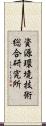 資源環境技術
総合研究所